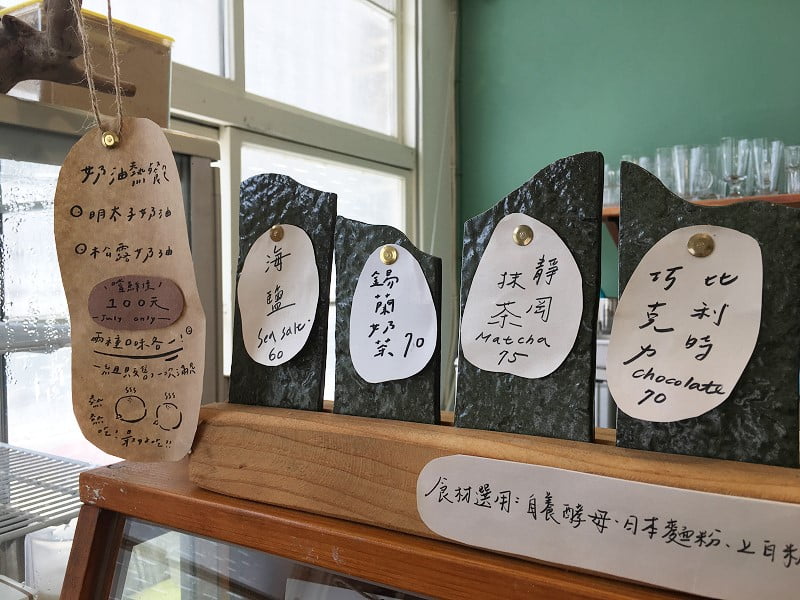 奶油熱餐
明太子奶油
松露奶油
嚐鮮價
100元
-July only-
兩種口味各一!
熱
熱
吃!最好吃!!
海鹽
Sea salt.
60
錫蘭奶茶 70
靜岡
抹茶
Matcha
75
比利時
巧克力
chocolate
70
食材選用:自養酵母、日本麵粉、上白糖